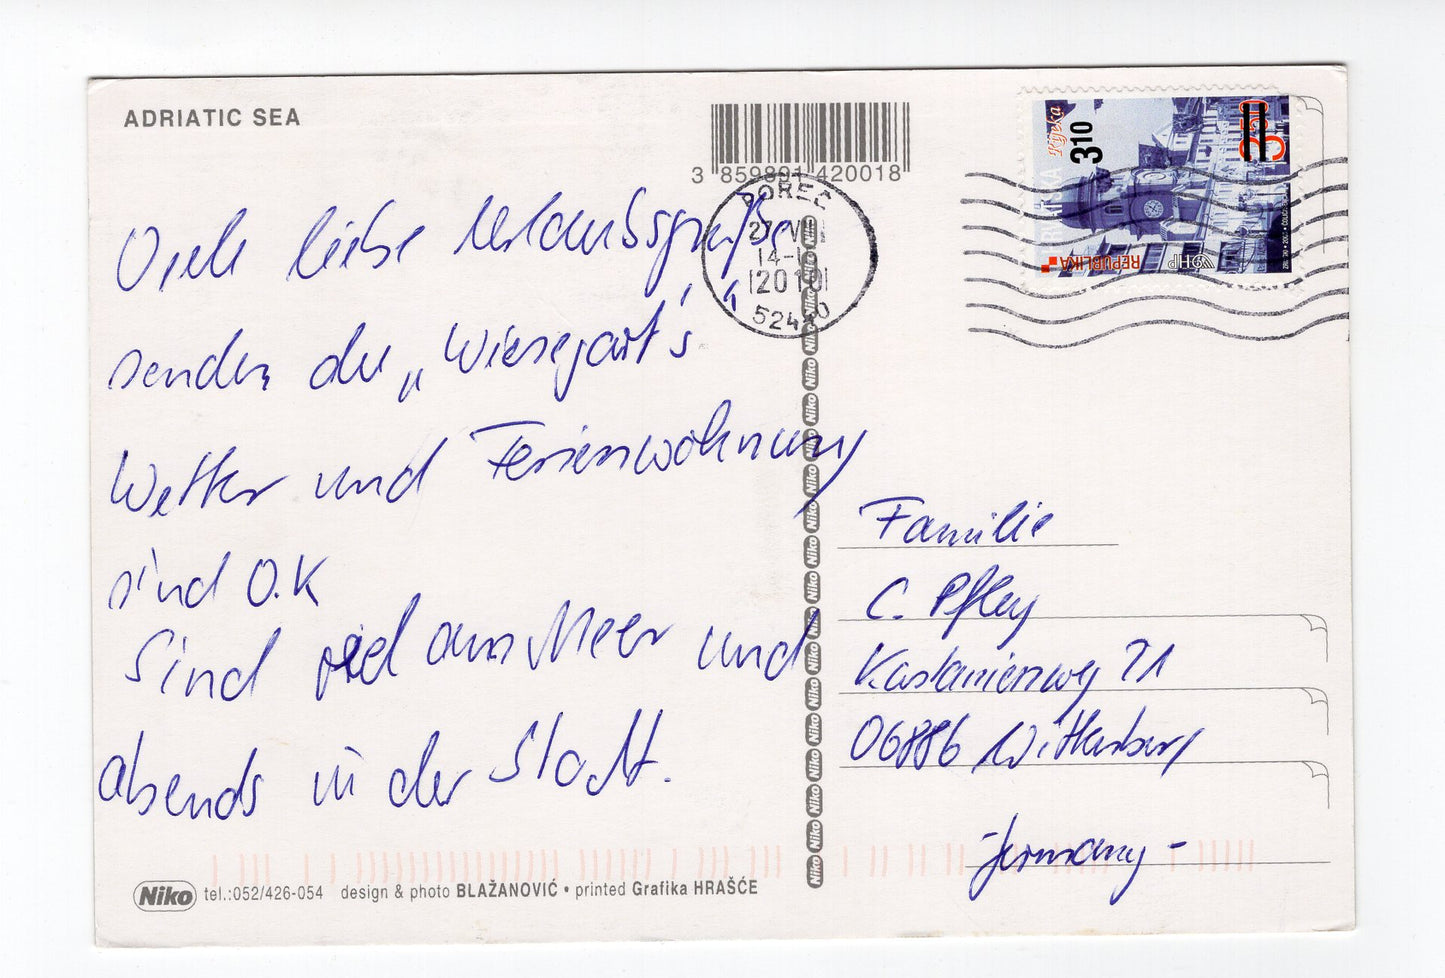 ADRIATIC SEA
3 859891 420018
Viele liebe Urlaubsgrüße
senden die „Wiesegart's“
Wetter und Ferienwohnung
sind O.K
Sind viel am Meer und
abends in der Stadt.
POREČ
27 VII
14-1
2010
52440
Rijeka
310
350
REPUBLIKA HRVATSKA
HP
Familie
C. Pfley
Kastanienweg 21
06886 Wittenberg
-Germany-
Niko tel.:052/426-054 design & photo BLAŽANOVIĆ • printed Grafika HRAŠĆE
Niko Niko Niko Niko Niko Niko Niko Niko Niko Niko Niko Niko Niko Niko Niko Niko Niko Niko Niko